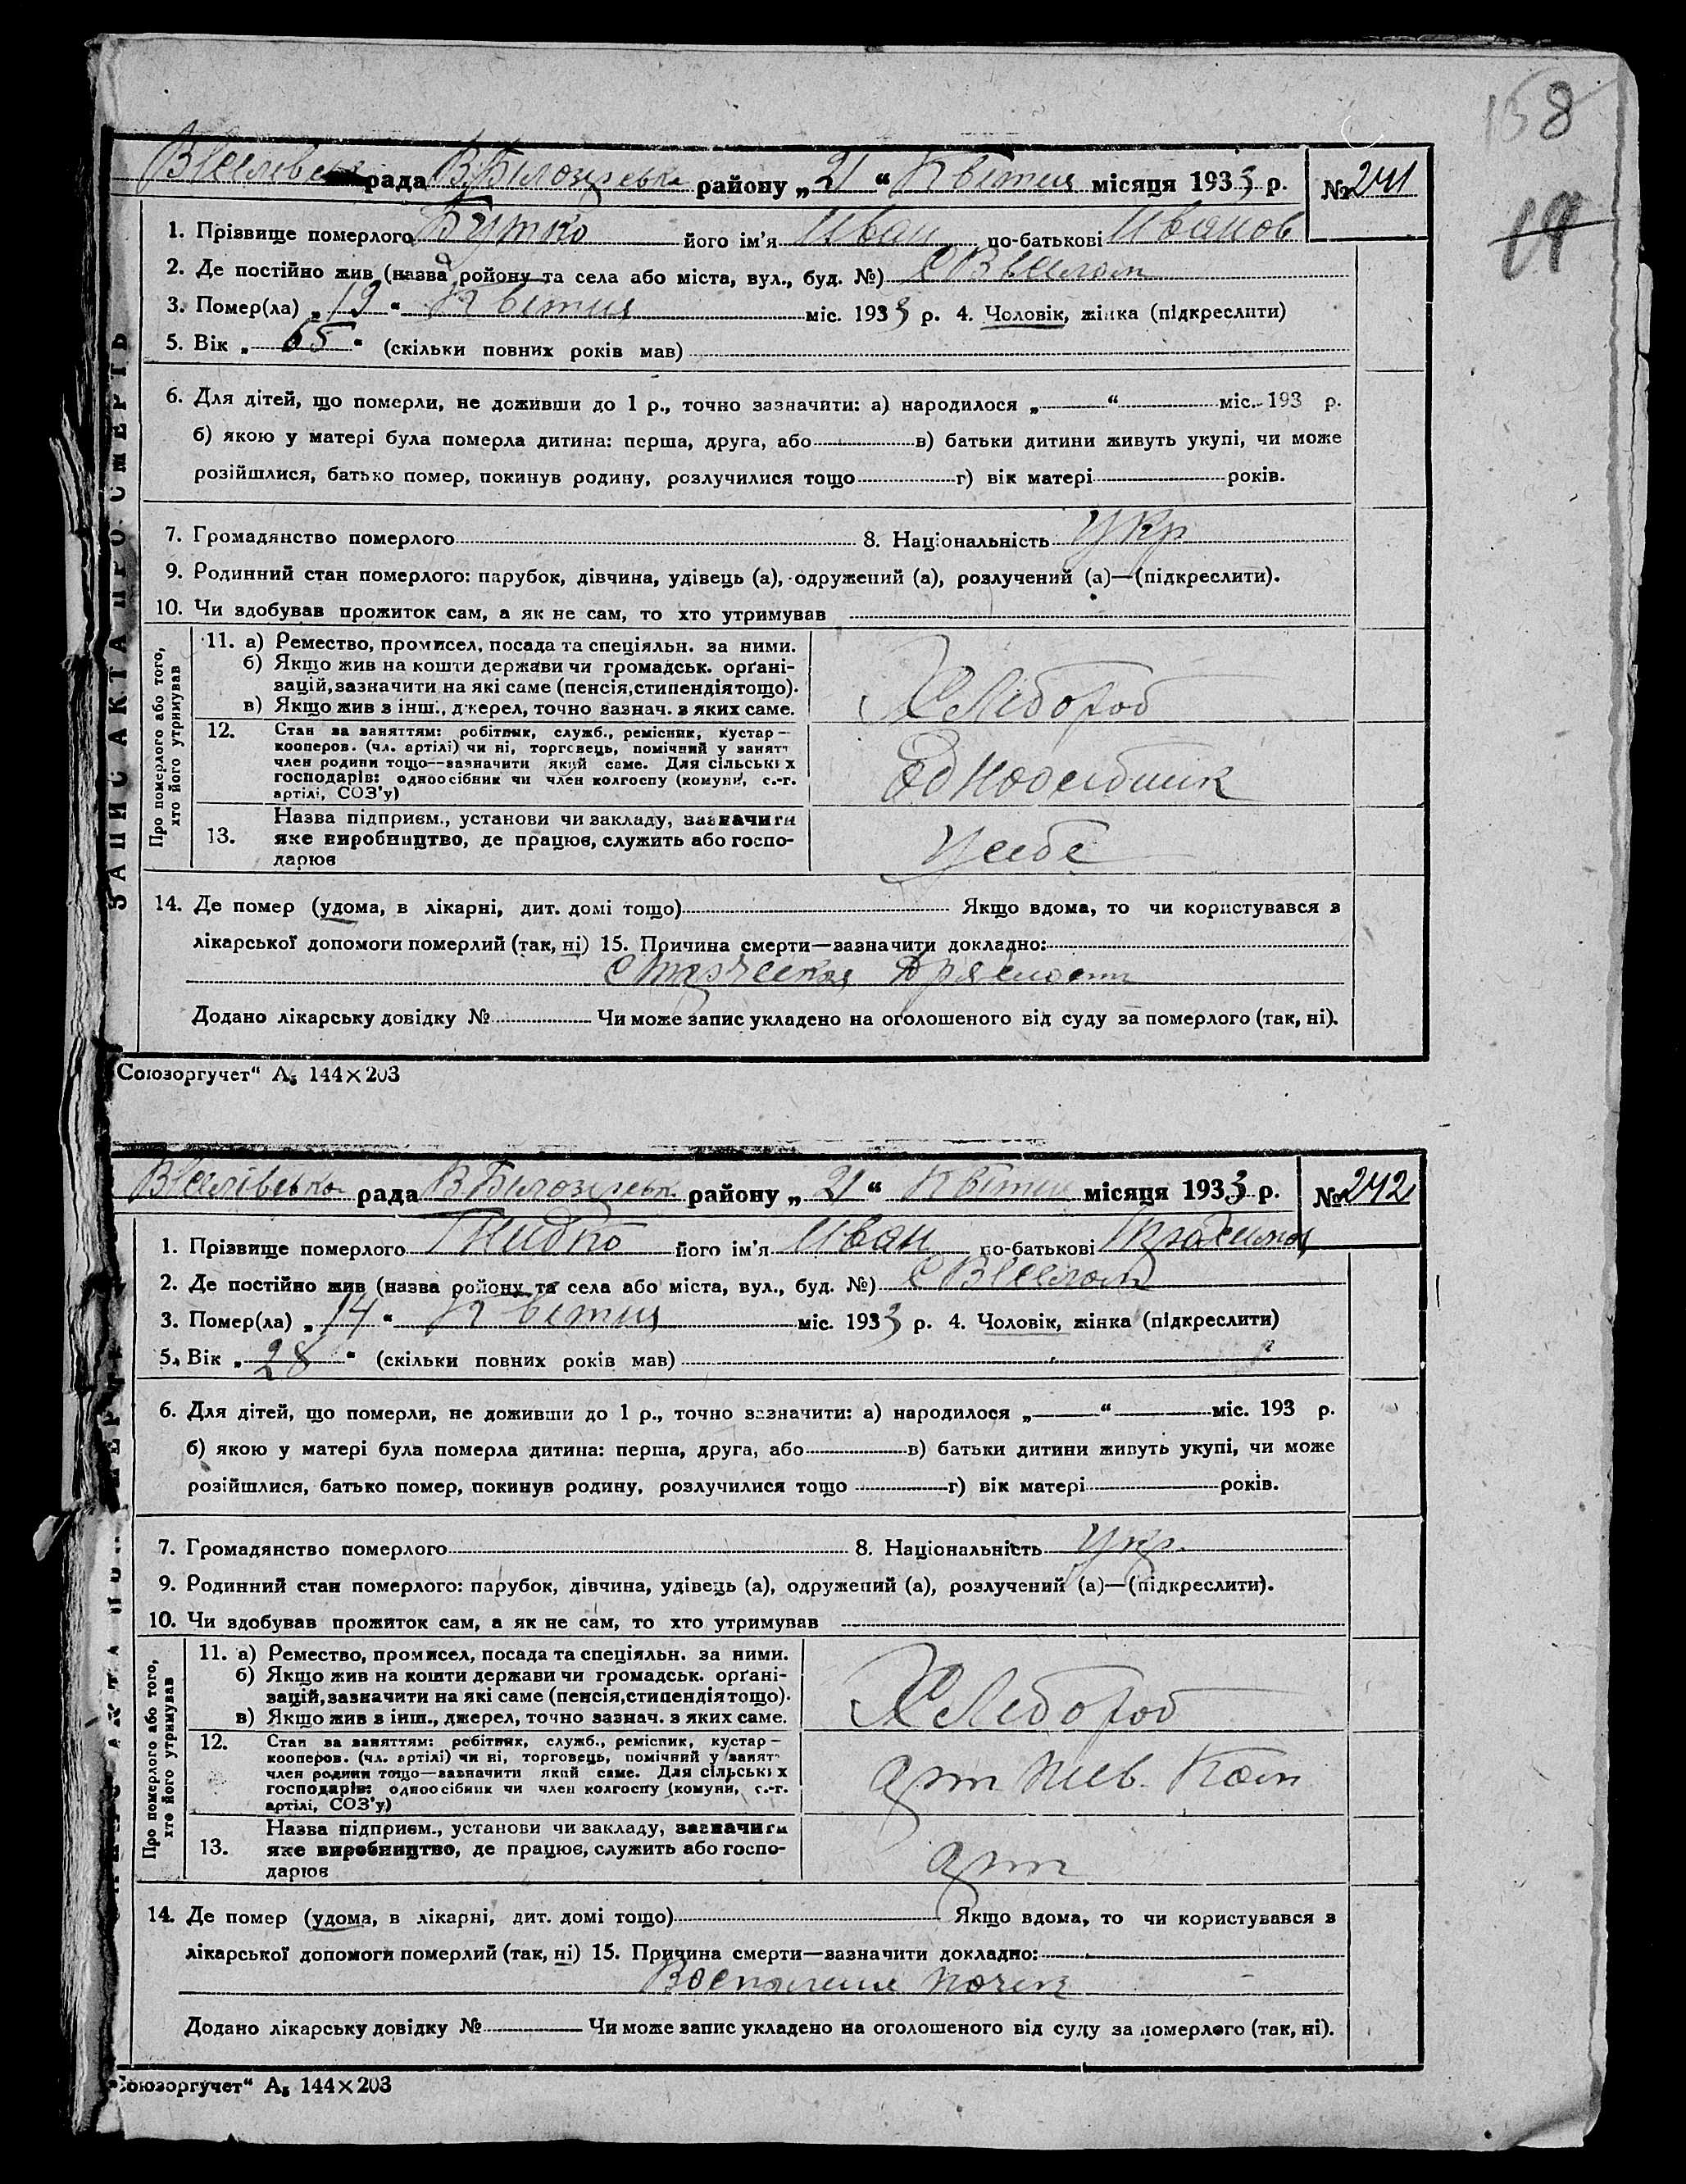 158
19
рада В.Білозірська району „21“ Квітня місяця 1933 р. № 241
1. Прізвище померлого Бутко його ім'я Иван по-батькові Иванов
2. Де постійно жив (назва ройону та села або міста, вул., буд. №) с
3. Помер(ла) „19“ Квітня міс. 1933 р. 4. Чоловік, жінка (підкреслити)
5. Вік „65“ (скільки повних років мав)
6. Для дітей, що померли, не доживши до 1 р., точно зазначити: а) народилося „ “ міс. 193 р.
б) якою у матері була померла дитина: перша, друга, або в) батьки дитини живуть укупі, чи може
розійшлися, батько помер, покинув родину, розлучилися тощо г) вік матері років.
7. Громадянство померлого 8. Національність Укр
9. Родинний стан померлого: парубок, дівчина, удівець (а), одружений (а), розлучений (а)—(підкреслити).
10. Чи здобував прожиток сам, а як не сам, то хто утримував
Про померлого або того,
хто його утримував
11. а) Ремество, промисел, посада та спеціяльн. за ними.
б) Якщо жив на кошти держави чи громадськ. орґані-
зацій, зазначити на які саме (пенсія, стипендія тощо).
в) Якщо жив з інш., джерел, точно зазнач. з яких саме.
Хлебороб
12. Стан за заняттям: робітник, служб., ремісник, кустар—
кооперов. (чл. артілі) чи ні, торговець, помічний у занятт
член родини тощо—зазначити який саме. Для сільських
господарів: одноосібник чи член колгоспу (комуни, с.-г.
артілі, СОЗ'у)
Одноосібник
13. Назва підприєм., установи чи закладу, зазначити
яке виробництво, де працює, служить або госпо-
дарює
У себе
14. Де помер (удома, в лікарні, дит. домі тощо) Якщо вдома, то чи користувався з
лікарської допомоги померлий (так, ні) 15. Причина смерти—зазначити докладно:
Старческая дряхлость
Додано лікарську довідку № Чи може запис укладено на оголошеного від суду за померлого (так, ні).
ЗАПИС АКТА ПРО СМЕРТЬ
Союзоргучет“ А5 144×203
рада В Білозірськ району „21“ Квітня місяця 1933 р. № 242
1. Прізвище померлого Гнидко його ім'я Иван по-батькові
2. Де постійно жив (назва ройону та села або міста, вул., буд. №) с
3. Помер(ла) „14“ Квітня міс. 1933 р. 4. Чоловік, жінка (підкреслити)
5. Вік „28“ (скільки повних років мав)
6. Для дітей, що померли, не доживши до 1 р., точно зазначити: а) народилося „ “ міс. 193 р.
б) якою у матері була померла дитина: перша, друга, або в) батьки дитини живуть укупі, чи може
розійшлися, батько помер, покинув родину, розлучилися тощо г) вік матері років.
7. Громадянство померлого 8. Національність Укр.
9. Родинний стан померлого: парубок, дівчина, удівець (а), одружений (а), розлучений (а)—(підкреслити).
10. Чи здобував прожиток сам, а як не сам, то хто утримував
Про померлого або того,
хто його утримував
11. а) Ремество, промисел, посада та спеціяльн. за ними.
б) Якщо жив на кошти держави чи громадськ. орґані-
зацій, зазначити на які саме (пенсія, стипендія тощо).
в) Якщо жив з інш., джерел, точно зазнач. з яких саме.
Хлебороб
12. Стан за заняттям: робітник, служб., ремісник, кустар—
кооперов. (чл. артілі) чи ні, торговець, помічний у занятт
член родини тощо—зазначити який саме. Для сільських
господарів: одноосібник чи член колгоспу (комуни, с.-г.
артілі, СОЗ'у)
арт
13. Назва підприєм., установи чи закладу, зазначити
яке виробництво, де працює, служить або госпо-
дарює
арт
14. Де помер (удома, в лікарні, дит. домі тощо) Якщо вдома, то чи користувався з
лікарської допомоги померлий (так, ні) 15. Причина смерти—зазначити докладно:
Воспаление почек
Додано лікарську довідку № Чи може запис укладено на оголошеного від суду за померлого (так, ні).
Союзоргучет“ А5 144×203